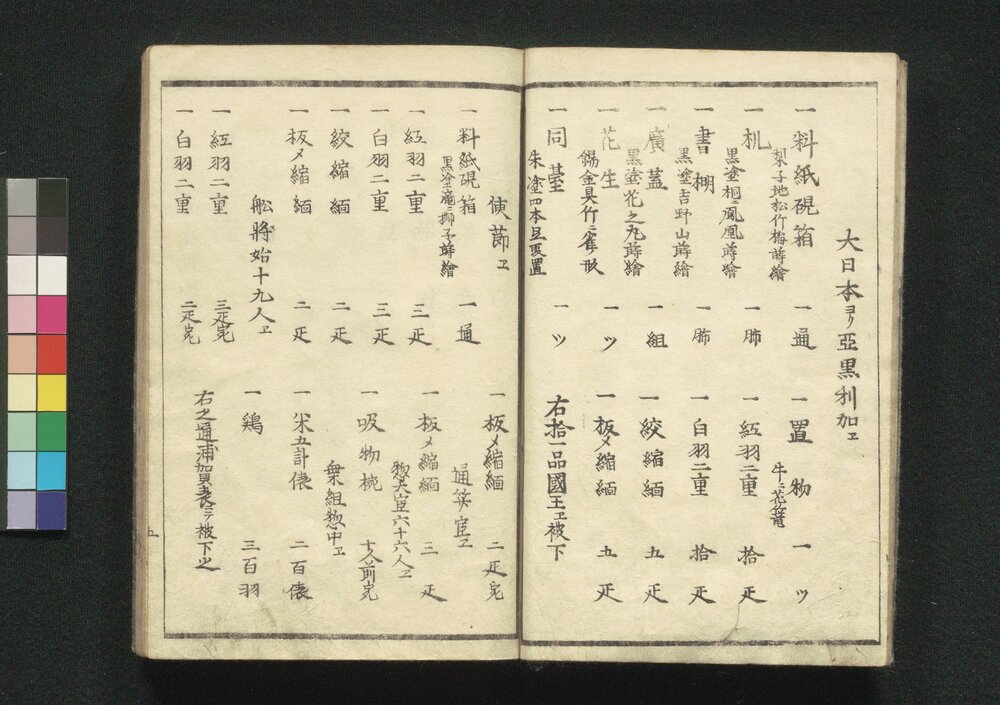 大日本ヨリ亞黒利加ヱ
一 料紙硯箱 一通
梨子地松竹梅蒔繪
一 机 一脚
黒塗桐ニ鳳凰蒔繪
一 書棚 一脚
黒塗吉野山蒔繪
一 廣蓋 一組
黒塗花之丸蒔繪
一 花生 一ツ
錫金具竹ニ雀形
一 同臺 一ツ
朱塗四本足置
一 置物 一ツ
牛ニ花籠
一 紅羽二重 拾疋
一 白羽二重 拾疋
一 絞縮緬 五疋
一 板〆縮緬 五疋
右拾一品國王ヱ被下
使節ヱ
一 料紙硯箱 一通
黒塗滝ニ獅子蒔繪
一 紅羽二重 三疋
一 白羽二重 三疋
一 絞縮緬 二疋
一 板〆縮緬 二疋
舩將始十九人ヱ
一 紅羽二重 三疋宛
一 白羽二重 二疋宛
一 板〆縮緬 二疋宛
通筭宦ヱ
一 板〆縮緬 三疋
惣大宦六十六人ヱ
一 吸物椀 十人前宛
乗組惣中ヱ
一 米五計俵 二百俵
一 鶏 三百羽
右之通浦賀表ニテ被下之
五